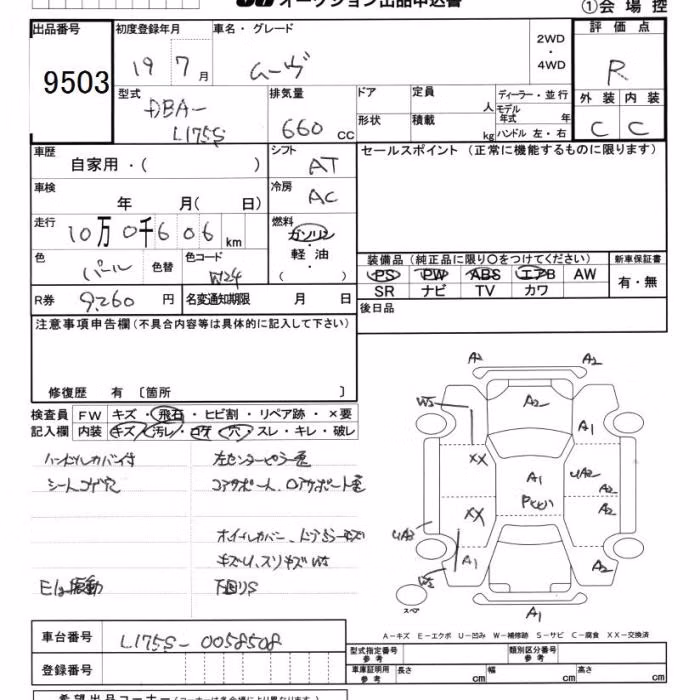 オークション出品申込書
①会場控
出品番号 初度登録年月 車名・グレード 評価点
9503 19 7月 ムーヴ 2WD・4WD R
型式 DBA-L175S 排気量 660 cc ドア 定員 人 ディーラー・並行 外装 内装
形状 積載 kg モデル年式 年 ハンドル 左・右 C C
車歴 自家用・( ) シフト AT セールスポイント (正常に機能するものに限ります)
車検 年 月( 日) 冷房 AC
走行 10万0千606km 燃料 ガソリン 軽油 ・( )
色 パール 色替 色コード W24
装備品(純正品に限り○をつけてください) 新車保証書
PS PW ABS エアB AW 有・無
SR ナビ TV カワ
R券 9,260円 名変通知期限 月 日
後日品
注意事項申告欄(不具合内容等は具体的に記入して下さい)
修復歴 有 〔箇所 〕
検査員 FW キズ・飛石・ヒビ割・リペア跡・×要
記入欄 内装 キズ・汚レ・コゲ・穴・スレ・キレ・破レ
ハンドルカバー付 左センターピラー歪
シートコゲ穴 コアサポート、ロアサポート歪
ホイールカバー、ドアミラーキズ
キズU、スリキズW5
E/g振動 下回りS
A2 A2
W5 A2 A1
XX A1 UA2 A2
XX A2
UA3 A1 A2
W5
スペア A1
A-キズ E-エクボ U-凹み W-補修跡 S-サビ C-腐食 XX-交換済
車台番号 L175S-0058508
型式指定番号 参考 類別区分番号 参考
登録番号 車庫証明用 参考 長さ cm 幅 cm 高さ cm
希望出品コーナー